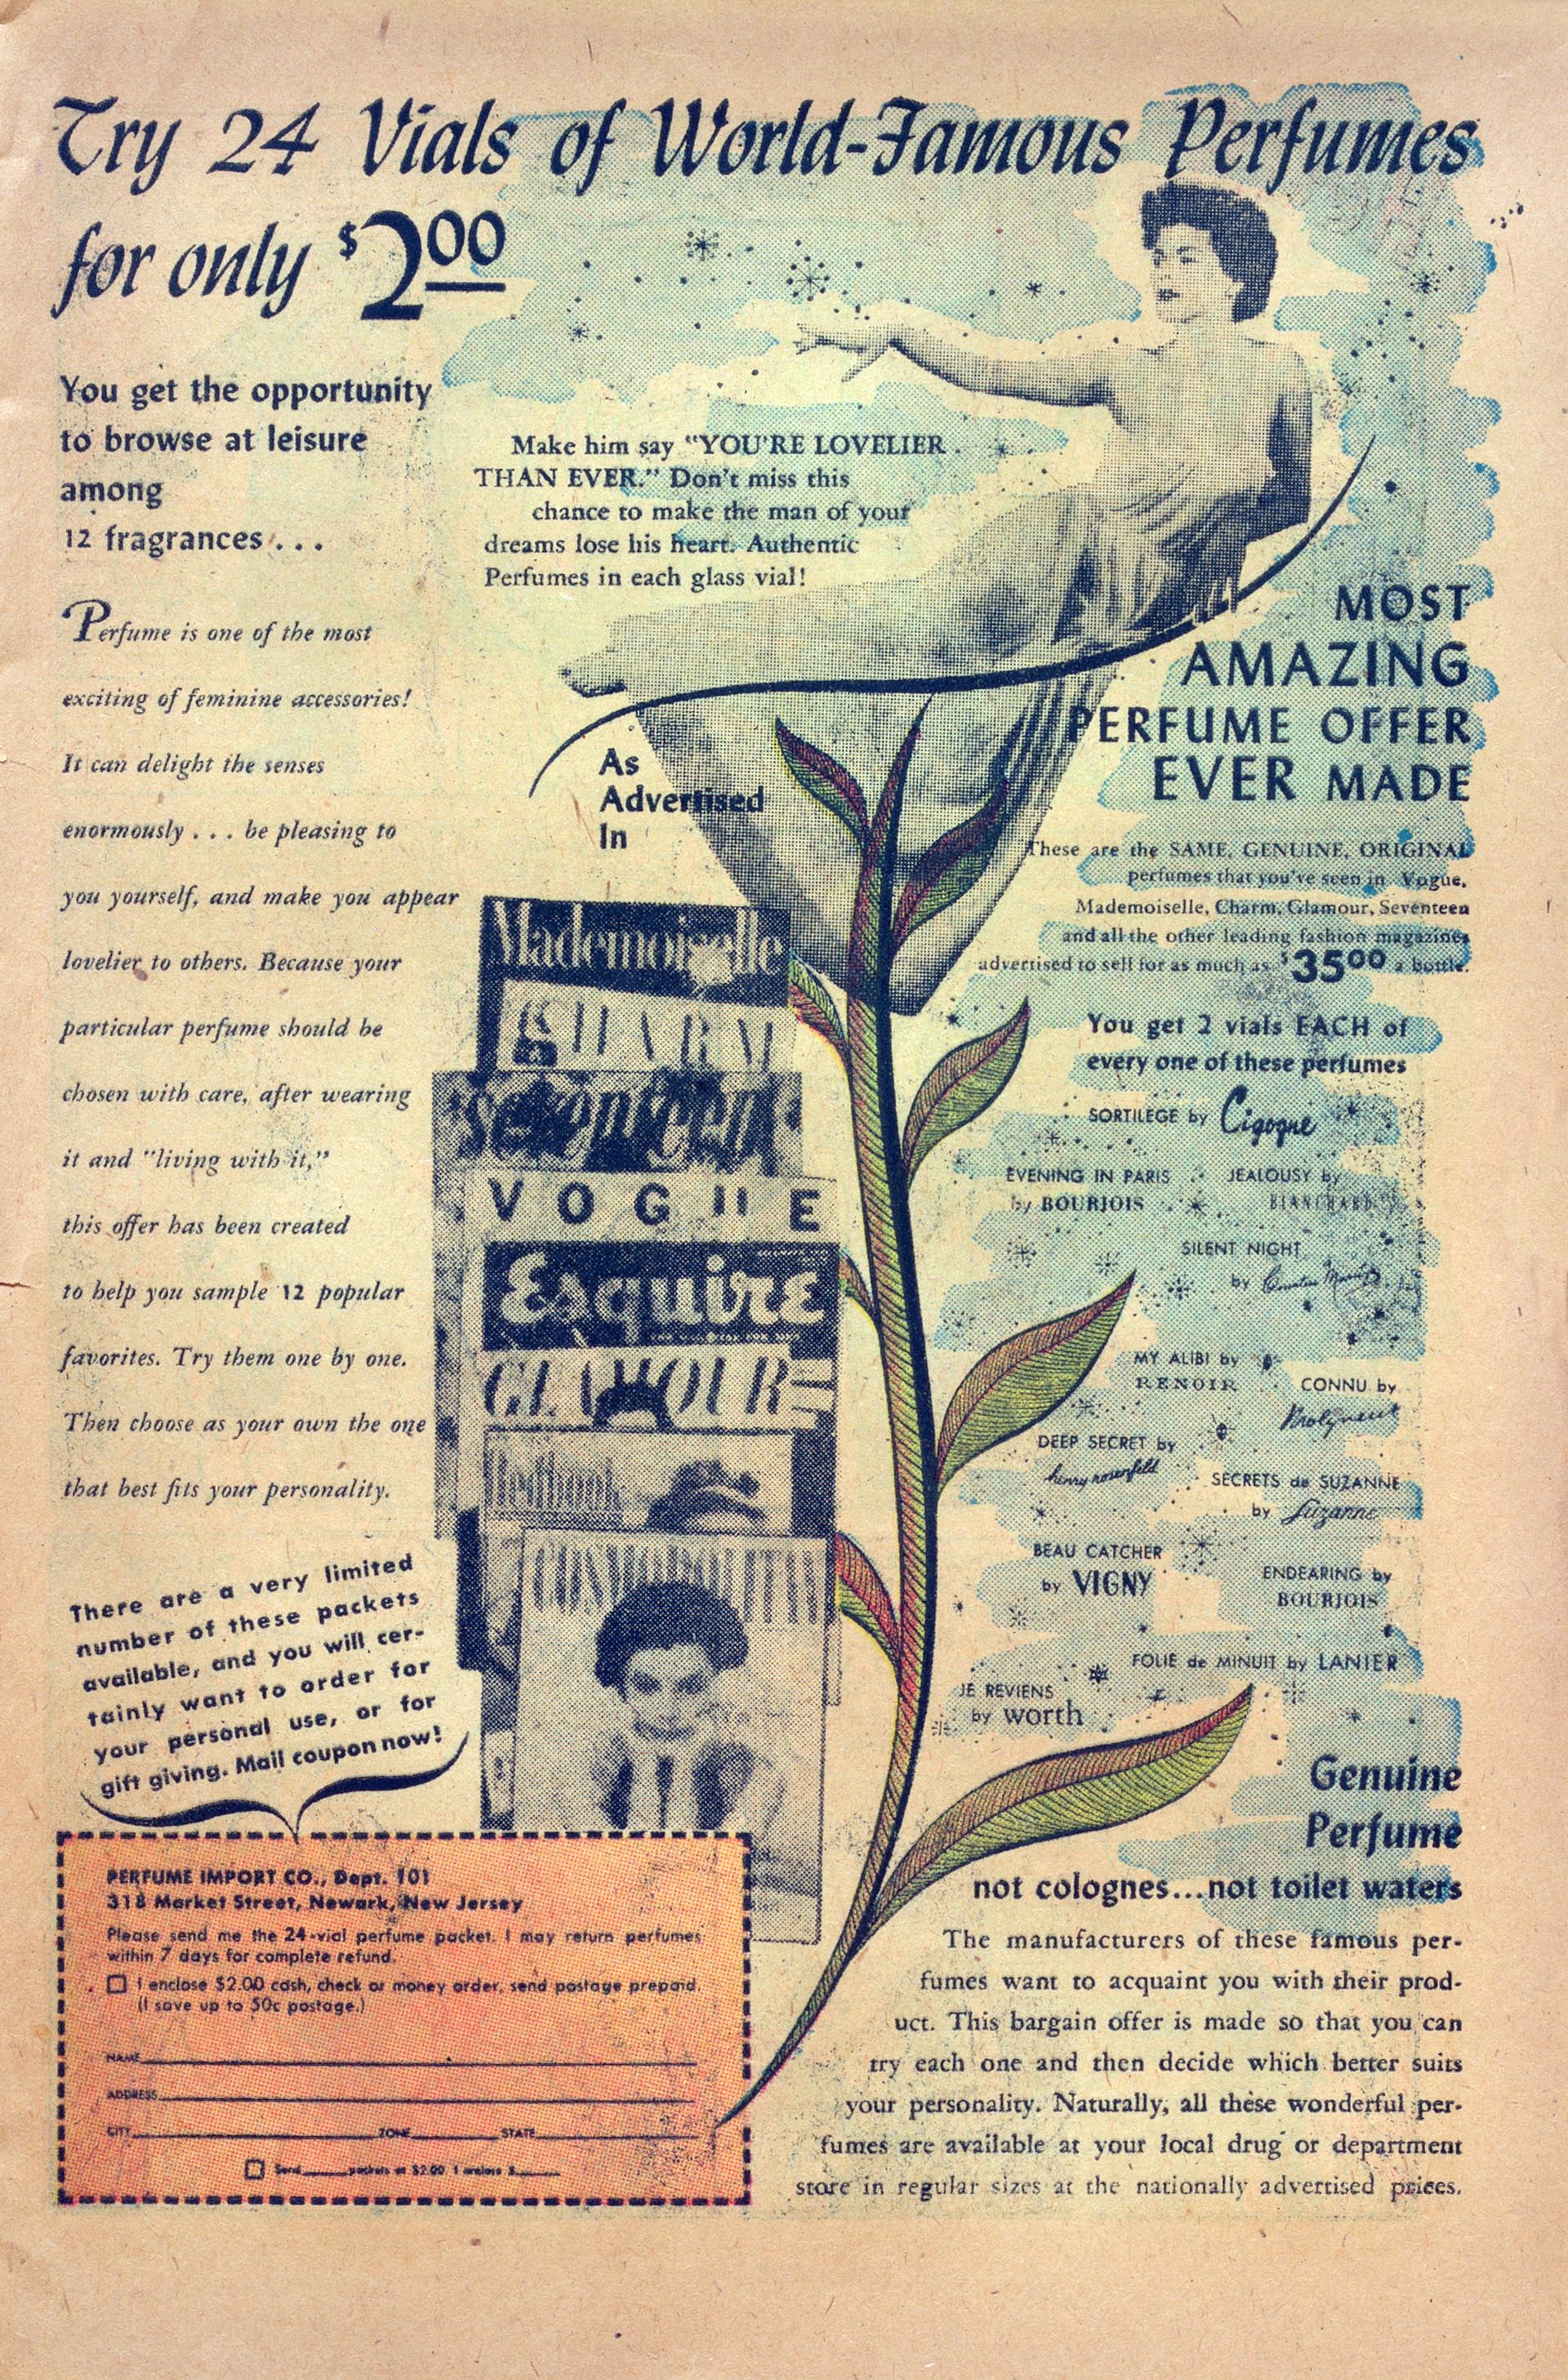 Try 24 Vials of World-Famous Perfumes
for only $2.00
You get the opportunity
to browse at leisure
among
12 fragrances . . .
Perfume is one of the most
exciting of feminine accessories!
It can delight the senses
enormously . . . be pleasing to
you yourself, and make you appear
lovelier to others. Because your
particular perfume should be
chosen with care, after wearing
it and "living with it,"
this offer has been created
to help you sample 12 popular
favorites. Try them one by one.
Then choose as your own the one
that best fits your personality.
There are a very limited
number of these packets
available, and you will cer-
tainly want to order for
your personal use, or for
gift giving. Mail coupon now!
Make him say "YOU'RE LOVELIER
THAN EVER." Don't miss this
chance to make the man of your
dreams lose his heart. Authentic
Perfumes in each glass vial!
As
Advertised
In
Mademoiselle
CHARM
Seventeen
VOGUE
Esquire
GLAMOUR
Redbook
COSMOPOLITAN
MOST
AMAZING
PERFUME OFFER
EVER MADE
These are the SAME, GENUINE, ORIGINAL
perfumes that you've seen in Vogue,
Mademoiselle, Charm, Glamour, Seventeen
and all the other leading fashion magazines
advertised to sell for as much as $35.00 a bottle.
You get 2 vials EACH of
every one of these perfumes
SORTILEGE by Cigogne
EVENING IN PARIS
by BOURJOIS
JEALOUSY by
BLANCHARD
SILENT NIGHT
by
MY ALIBI by
RENOIR
CONNU by
Molyneux
DEEP SECRET by
henry rosenfeld
SECRETS de SUZANNE
by Suzanne
BEAU CATCHER
by VIGNY
ENDEARING by
BOURJOIS
FOLIE de MINUIT by LANIER
JE REVIENS
by worth
Genuine
Perfume
not colognes...not toilet waters
The manufacturers of these famous per-
fumes want to acquaint you with their prod-
uct. This bargain offer is made so that you can
try each one and then decide which better suits
your personality. Naturally, all these wonderful per-
fumes are available at your local drug or department
store in regular sizes at the nationally advertised prices.
PERFUME IMPORT CO., Dept. 101
318 Market Street, Newark, New Jersey
Please send me the 24-vial perfume packet. I may return perfumes
within 7 days for complete refund.
I enclose $2.00 cash, check or money order, send postage prepaid.
(I save up to 50c postage.)
NAME
ADDRESS
CITY ZONE STATE
Send packets at $2.00 I enclose $